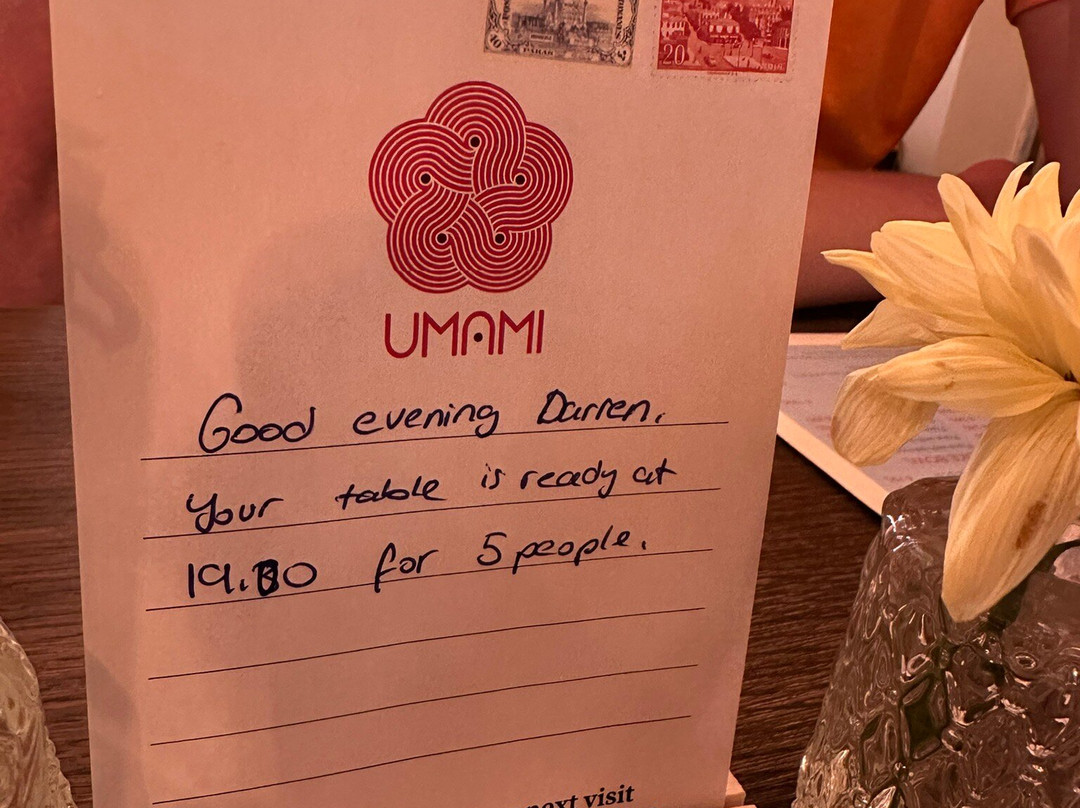 20
UMAMI
Good evening Darren,
Your table is ready at
for 5 people.
next visit